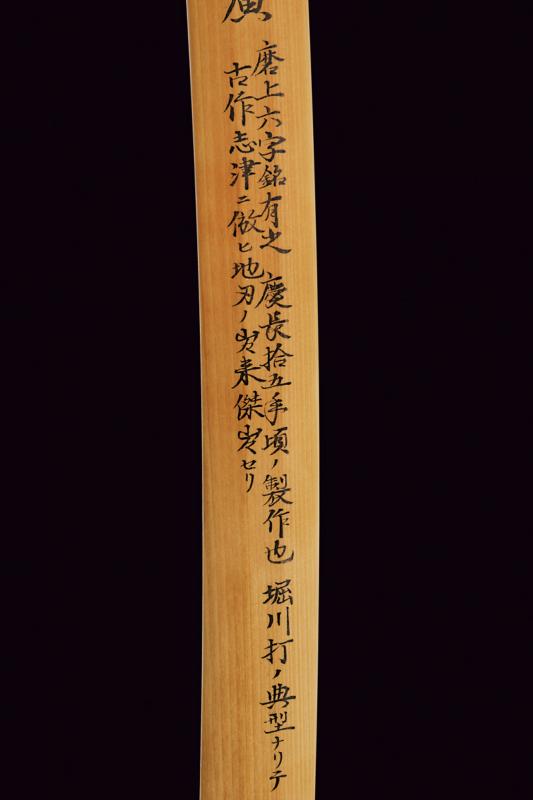 廣
磨上六字銘有之 慶長拾五年頃ノ製作也 堀川打ノ典型ナリテ
古作志津ニ倣ヒ地刃ノ出来傑出セリ